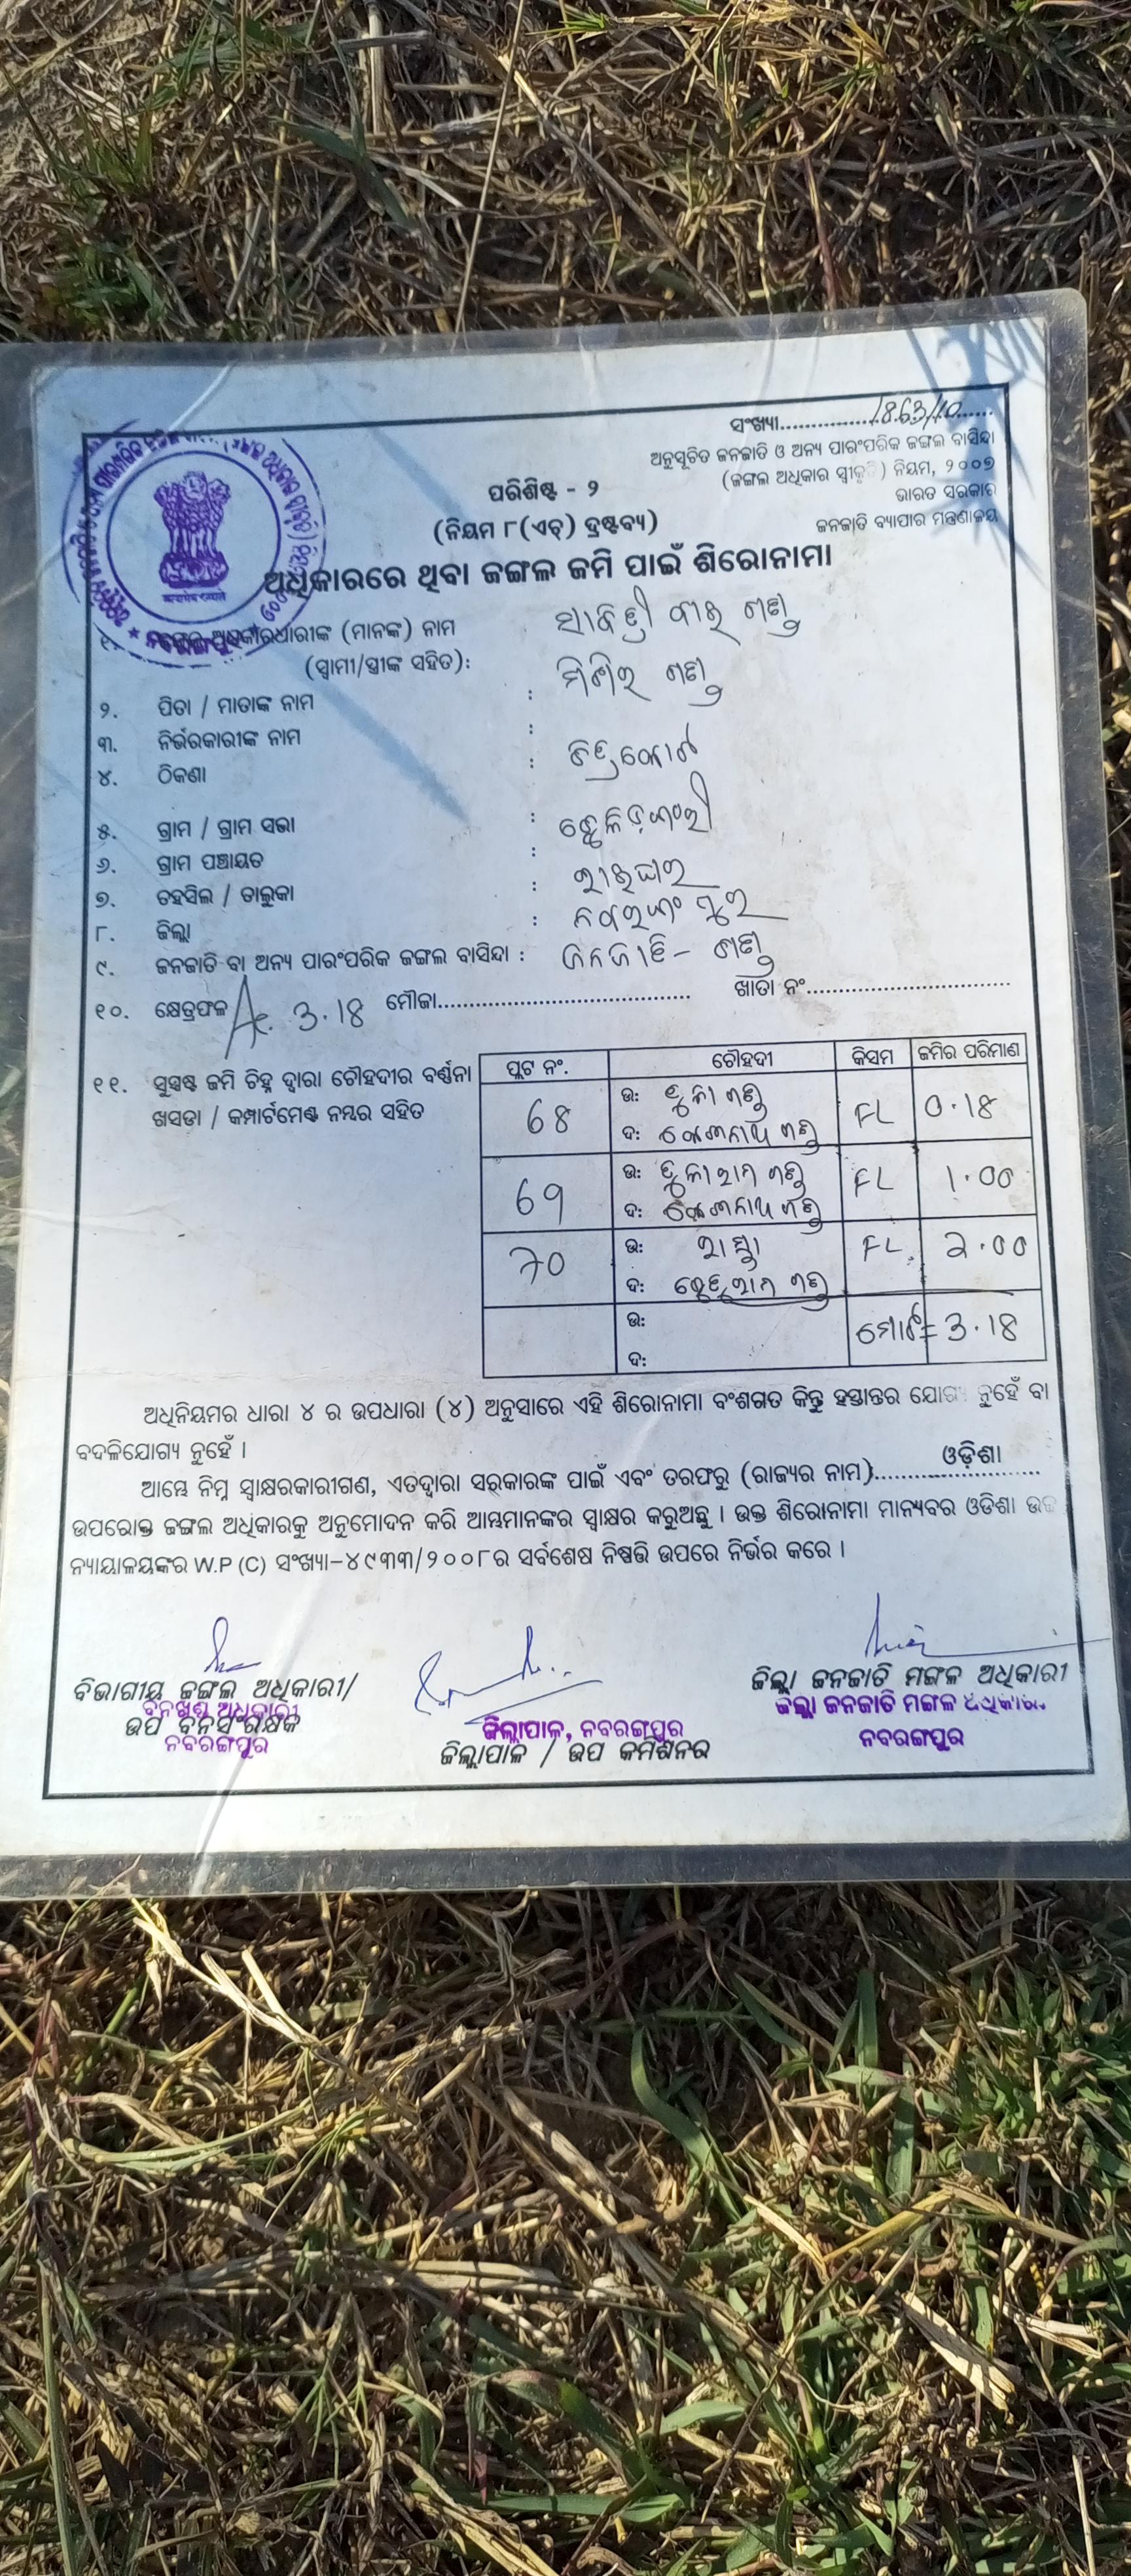 ସଂଖ୍ୟା....................1863/10......
ଅନୁସୂଚିତ ଜନଜାତି ଓ ଅନ୍ୟ ପାରଂପରିକ ଜଙ୍ଗଲ ବାସିନ୍ଦା
(ଜଙ୍ଗଲ ଅଧିକାର ସ୍ୱୀକୃତି) ନିୟମ, ୨୦୦୭
ଭାରତ ସରକାର
ଜନଜାତି ବ୍ୟାପାର ମନ୍ତ୍ରଣାଳୟ
ପରିଶିଷ୍ଟ - ୨
(ନିୟମ ୮(ଏଚ୍) ଦ୍ରଷ୍ଟବ୍ୟ)
ଅଧିକାରରେ ଥିବା ଜଙ୍ଗଲ ଜମି ପାଇଁ ଶିରୋନାମା
୧. ଜଙ୍ଗଲ ଅଧିକାରଧାରୀଙ୍କ (ମାନଙ୍କ) ନାମ ସାବିତ୍ରୀ ବାଇ ଗଣ୍ଡ
(ସ୍ୱାମୀ/ସ୍ତ୍ରୀଙ୍କ ସହିତ): ମିଶିର ଗଣ୍ଡ
୨. ପିତା / ମାତାଙ୍କ ନାମ :
୩. ନିର୍ଭରକାରୀଙ୍କ ନାମ :
୪. ଠିକଣା : ଚିତ୍ରକୋଟ
୫. ଗ୍ରାମ / ଗ୍ରାମ ସଭା :
୬. ଗ୍ରାମ ପଞ୍ଚାୟତ :
୭. ତହସିଲ / ତାଲୁକା : ରାଇଘର
୮. ଜିଲ୍ଲା : ନବରଙ୍ଗପୁର
୯. ଜନଜାତି ବା ଅନ୍ୟ ପାରଂପରିକ ଜଙ୍ଗଲ ବାସିନ୍ଦା : ଜନଜାତି - ଗଣ୍ଡ
୧୦. କ୍ଷେତ୍ରଫଳ Ac. 3.18 ମୌଜା........................................ ଖାତା ନଂ................................
୧୧. ସୁସ୍ପଷ୍ଟ ଜମି ଚିହ୍ନ ଦ୍ୱାରା ଚୌହଦୀର ବର୍ଣ୍ଣନା
ଖସଡା / କମ୍ପାର୍ଟମେଣ୍ଟ ନମ୍ବର ସହିତ
ପ୍ଲଟ ନଂ. ଚୌହଦୀ କିସମ ଜମିର ପରିମାଣ
68 ଉ: ଗଣ୍ଡ FL 0.18
ଦ: ଗଣ୍ଡ
69 ଉ: ଗଣ୍ଡ FL 1.00
ଦ: ଗଣ୍ଡ
70 ଉ: ରାସ୍ତା FL 2.00
ଦ: ଗଣ୍ଡ
ଉ: ମୋଟ = 3.18
ଦ:
ଅଧିନିୟମର ଧାରା ୪ ର ଉପଧାରା (୪) ଅନୁସାରେ ଏହି ଶିରୋନାମା ବଂଶଗତ କିନ୍ତୁ ହସ୍ତାନ୍ତର ଯୋଗ୍ୟ ନୁହେଁ ବା
ବଦଳିଯୋଗ୍ୟ ନୁହେଁ ।
ଆମ୍ଭେ ନିମ୍ନ ସ୍ୱାକ୍ଷରକାରୀଗଣ, ଏତଦ୍ୱାରା ସରକାରଙ୍କ ପାଇଁ ଏବଂ ତରଫରୁ (ରାଜ୍ୟର ନାମ)..........ଓଡ଼ିଶା..........
ଉପରୋକ୍ତ ଜଙ୍ଗଲ ଅଧିକାରକୁ ଅନୁମୋଦନ କରି ଆମ୍ଭମାନଙ୍କର ସ୍ୱାକ୍ଷର କରୁଅଛୁ । ଉକ୍ତ ଶିରୋନାମା ମାନ୍ୟବର ଓଡିଶା ଉଚ୍ଚ
ନ୍ୟାୟାଳୟଙ୍କର W.P (C) ସଂଖ୍ୟା-୪୯୩୩/୨୦୦୮ର ସର୍ବଶେଷ ନିଷ୍ପତ୍ତି ଉପରେ ନିର୍ଭର କରେ ।
ବିଭାଗୀୟ ଜଙ୍ଗଲ ଅଧିକାରୀ/
ବନଖଣ୍ଡ ଅଧିକାରୀ
ଉପ ବନସଂରକ୍ଷକ
ନବରଙ୍ଗପୁର
ଜିଲ୍ଲାପାଳ, ନବରଙ୍ଗପୁର
ଜିଲ୍ଲାପାଳ / ଉପ କମିଶନର
ଜିଲ୍ଲା ଜନଜାତି ମଙ୍ଗଳ ଅଧିକାରୀ
ଜିଲ୍ଲା ଜନଜାତି ମଙ୍ଗଳ ଅଧିକାରୀ
ନବରଙ୍ଗପୁର